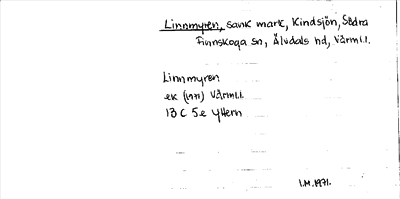 Linnmyren, sank mark, Kindsjön, Södra
Finnskoga sn, Älvdals hd, Värml.l.
Linnmyren
ek (1971) Värml.l.
13 C 5e Yttern
I.M. 1971.